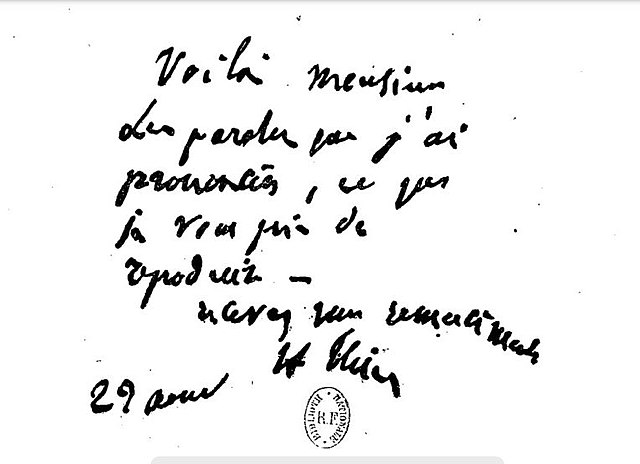 Voilà monsieur
les paroles que j'ai
prononcées, ce que
je vous prie de
reproduire —
recevez mes
A Thiers
29 aout
BIBLIOTH. NATIONALE
R.F.